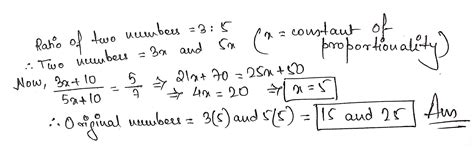 Ratio of two numbers = 3 : 5
∴ Two numbers = 3x and 5x (x = constant of proportionality)
Now, (3x+10)/(5x+10) = 5/7 ⇒ 21x + 70 = 25x + 50
⇒ 4x = 20 ⇒ x = 5
∴ Original numbers = 3(5) and 5(5) = 15 and 25 Ans